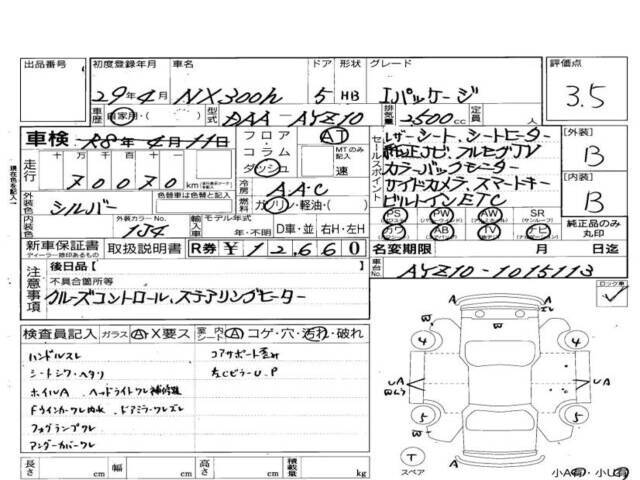 出品番号 初度登録年月 車名 ドア 形状 グレード 評価点
29年4月 NX300h 5 HB Iパッケージ 3.5
車歴 自家用・( ) 型式 DAA-AYZ10 排気量 2500cc 定員 人
車検 R8年4月11日 フロア・コラム ダッシュ AT MTのみ記入 速
セールスポイント
レザーシート、シートヒーター
純正ナビ、フルセグTV
カラーバックモニター
サイドカメラ、スマートキー
ビルトインETC
[外装] B
[内装] B
走行 十万 万 千 百 十
70070 km
外装色 シルバー 色替車は色替と記入
冷房 AAC
燃料 ガソリン・軽油・( )
内装色 外装カラーNo. 1J4 輸入車 モデル年式 年・不明 D車・並 右H・左H
PS PW AW SR
カワ AB TV ナビ
純正品のみ丸印
新車保証書 取扱説明書 R券 ¥12,660
ディーラー捺印あるもの
名変期限 月 日迄
車台No. AYZ10-1015113
注意事項
後日品[ ]
不具合箇所等
クルーズコントロール、ステアリングヒーター
ロック車
検査員記入 ガラス A・X要ス 室内シート A コゲ・穴・汚れ・破れ
ハンドルスレ コアサポート歪み
シートシワ・ヘタリ 左CピラーU.P
ホイルA ヘッドライトワレ補修跡
Fウインカーワレ内水 ドアミラーワレズレ
フォグランプワレ
アンダーカバーワレ
長さ cm 幅 cm 高さ cm 積載量 kg
A
W
4 4
UA
UA
5 5
W
A
T
スペア
小A有・小U有